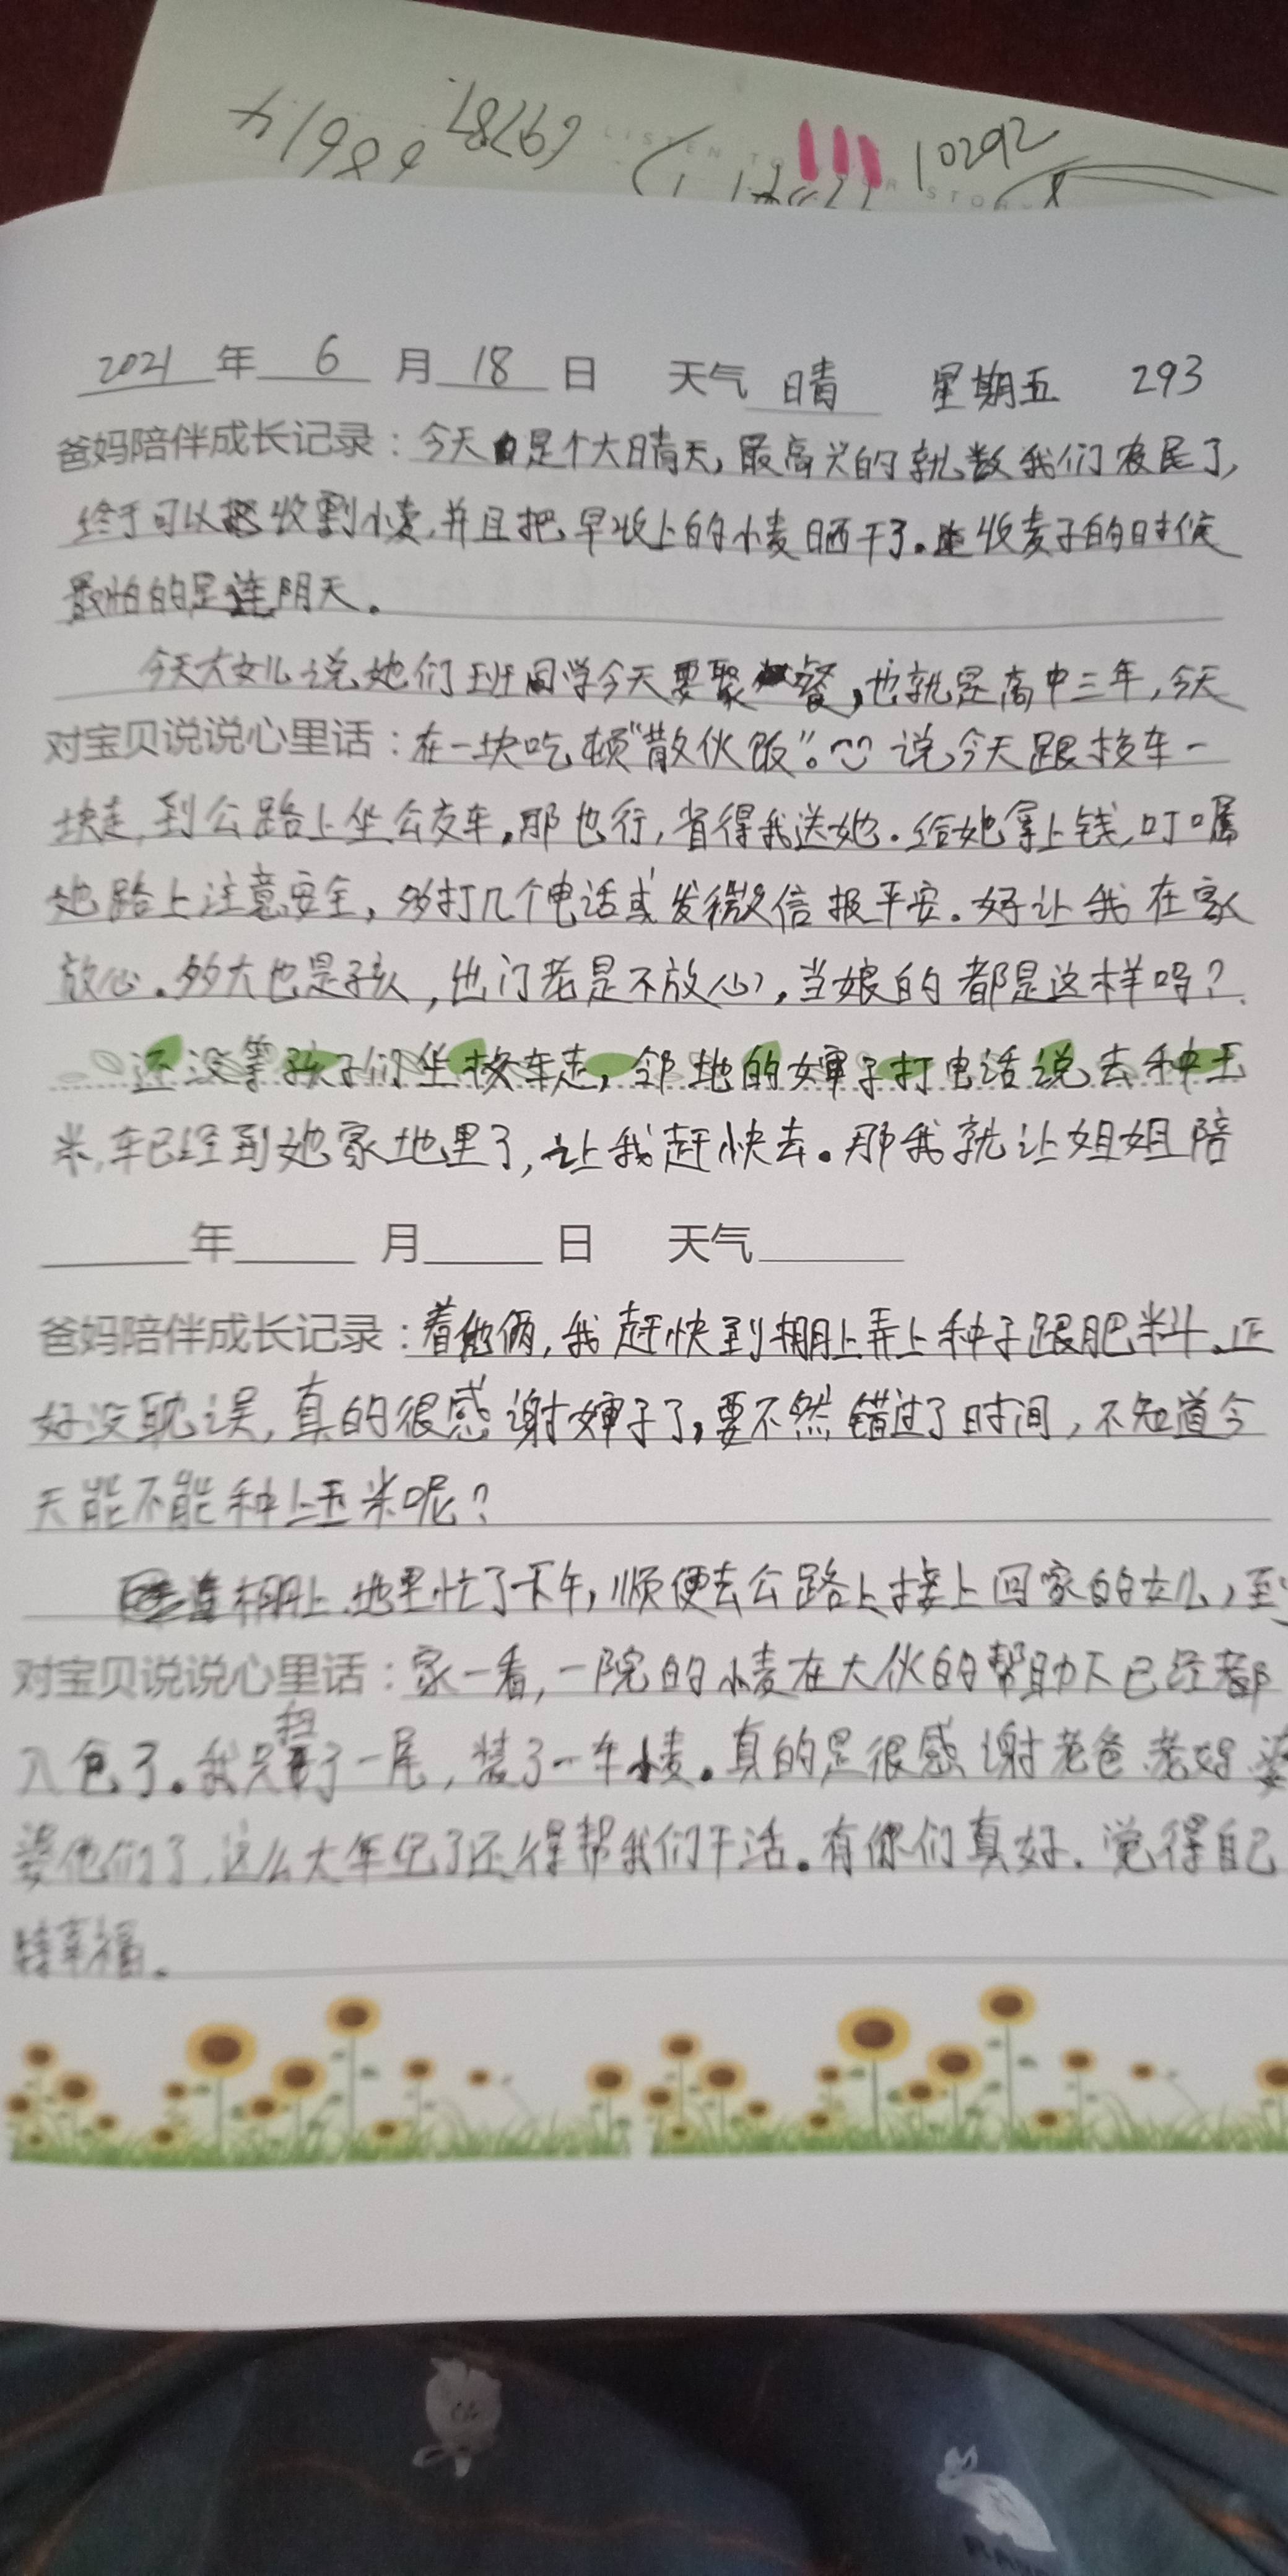 10292
2021 年 6 月 18 日 天气 晴 星期五 293
爸妈陪伴成长记录：今天是个大晴天，最高兴的就数我们农民了，
终于可以收割小麦，并且把早收上的小麦晒干了。收麦子的时候
最怕的是连阴天。
今天大女儿说她们班同学今天要聚餐，也就是高中三年，今天
对宝贝说说心里话：在一块吃顿“散伙饭”。说今天跟校车一
块走，到公路上坐公交车。那也行，省得我送她。给她拿上钱，叮嘱
她路上注意安全，多打几个电话或发微信报平安。好让我在家
放心。多大也是孩人，出门老是不放心，当娘的都是这样吗？
还没等孩子们坐校车走，邻地的婶子打电话说去种玉
米，车已经到她家地里了，让我赶快去。那我就让姐姐陪
年 月 日 天气
爸妈陪伴成长记录：着他俩，我赶快到棚上弄上种子跟肥料。正
好没耽误，真的很感谢婶子了，要不然错过了时间，不知道今
天能不能种上玉米呢？
棚上、地里忙了一下午，顺便去公路上接上回家的女儿，到
对宝贝说说心里话：家一看，一院的小麦在大伙的帮助下已经都
入仓了。我只扫了一尾，装了一车小麦。真的是很感谢老爸、老妈、婆
婆他们了，这么大年纪了还得帮我们干活。有你们真好，觉得自己
特幸福。